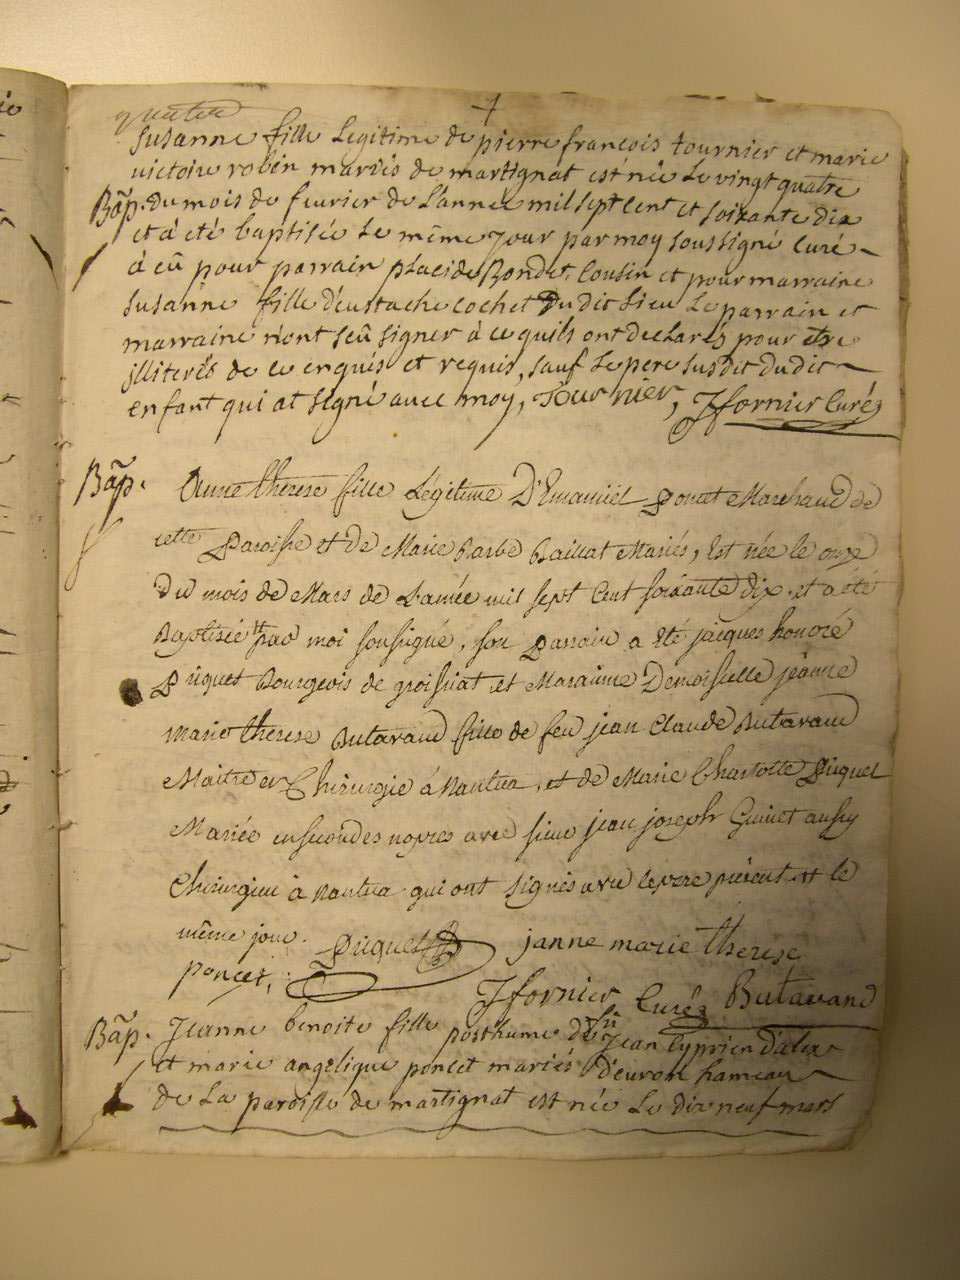 quatre
susanne fille Legitime de pierre françois tournier et marie
victoire robin mariés de martignat est née Le vingt quatre
Bãp. du mois de fevrier de L'année mil sept cent et soixante dix
et à eté baptisée Le même jour par moy soussigné Curé
à eû pour parrain placide Bondet, Cousin et pour marraine
susanne fille d'eustache cochet du dit Lieu Le parrain et
marraine n'ont seû signer à ce quils ont declarés pour etre
jlliterés de ce enquis et requis, sauf Le pere susdit du dit
enfant qui at signé avec moy, Tournier, Jfornier Curé
Bãp. Anne therese fille Légitime D'Emaniiel Poncet Marchand de
cette Paroisse et de Marie Barbe Baillat Mariés, Est née le onze
du mois de Mars de L'année mil sept Cent soixante dix. et a été
Baptisée par moi soussigné, son Parrain a été jacques honoré
Piquet Bourgeois de groissiat et Maraine Demoiselle jeanne
marie therese Butavand fille de feu jean Claude Butavand
Maitre en Chirurgie à Nantua, et de Marie Charlotte Piquet
Mariée en secondes nopces avec sieur jean joseph Guinet aussy
Chirurgien à Nantua qui ont signés avec le pere présent et le
même jour. Piquet janne marie therese
poncet, Jfornier Curé Butavand
Bãp. Jeanne benoite fille posthume de fû Jean Cyprien d'alex
et marie angelique poncet mariés d'evron hameau
de La paroisse de martignat est née Le dix neuf mars